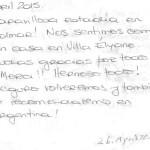 ril 2015.
maravillosa estadía en
olmar! Nos sentimos como
n casa en Villa Elyane.
uchas gracias por todo
Merea!! Hermoso todo!
seguro volveremos y tambié
recomendaremos en
rgentina!